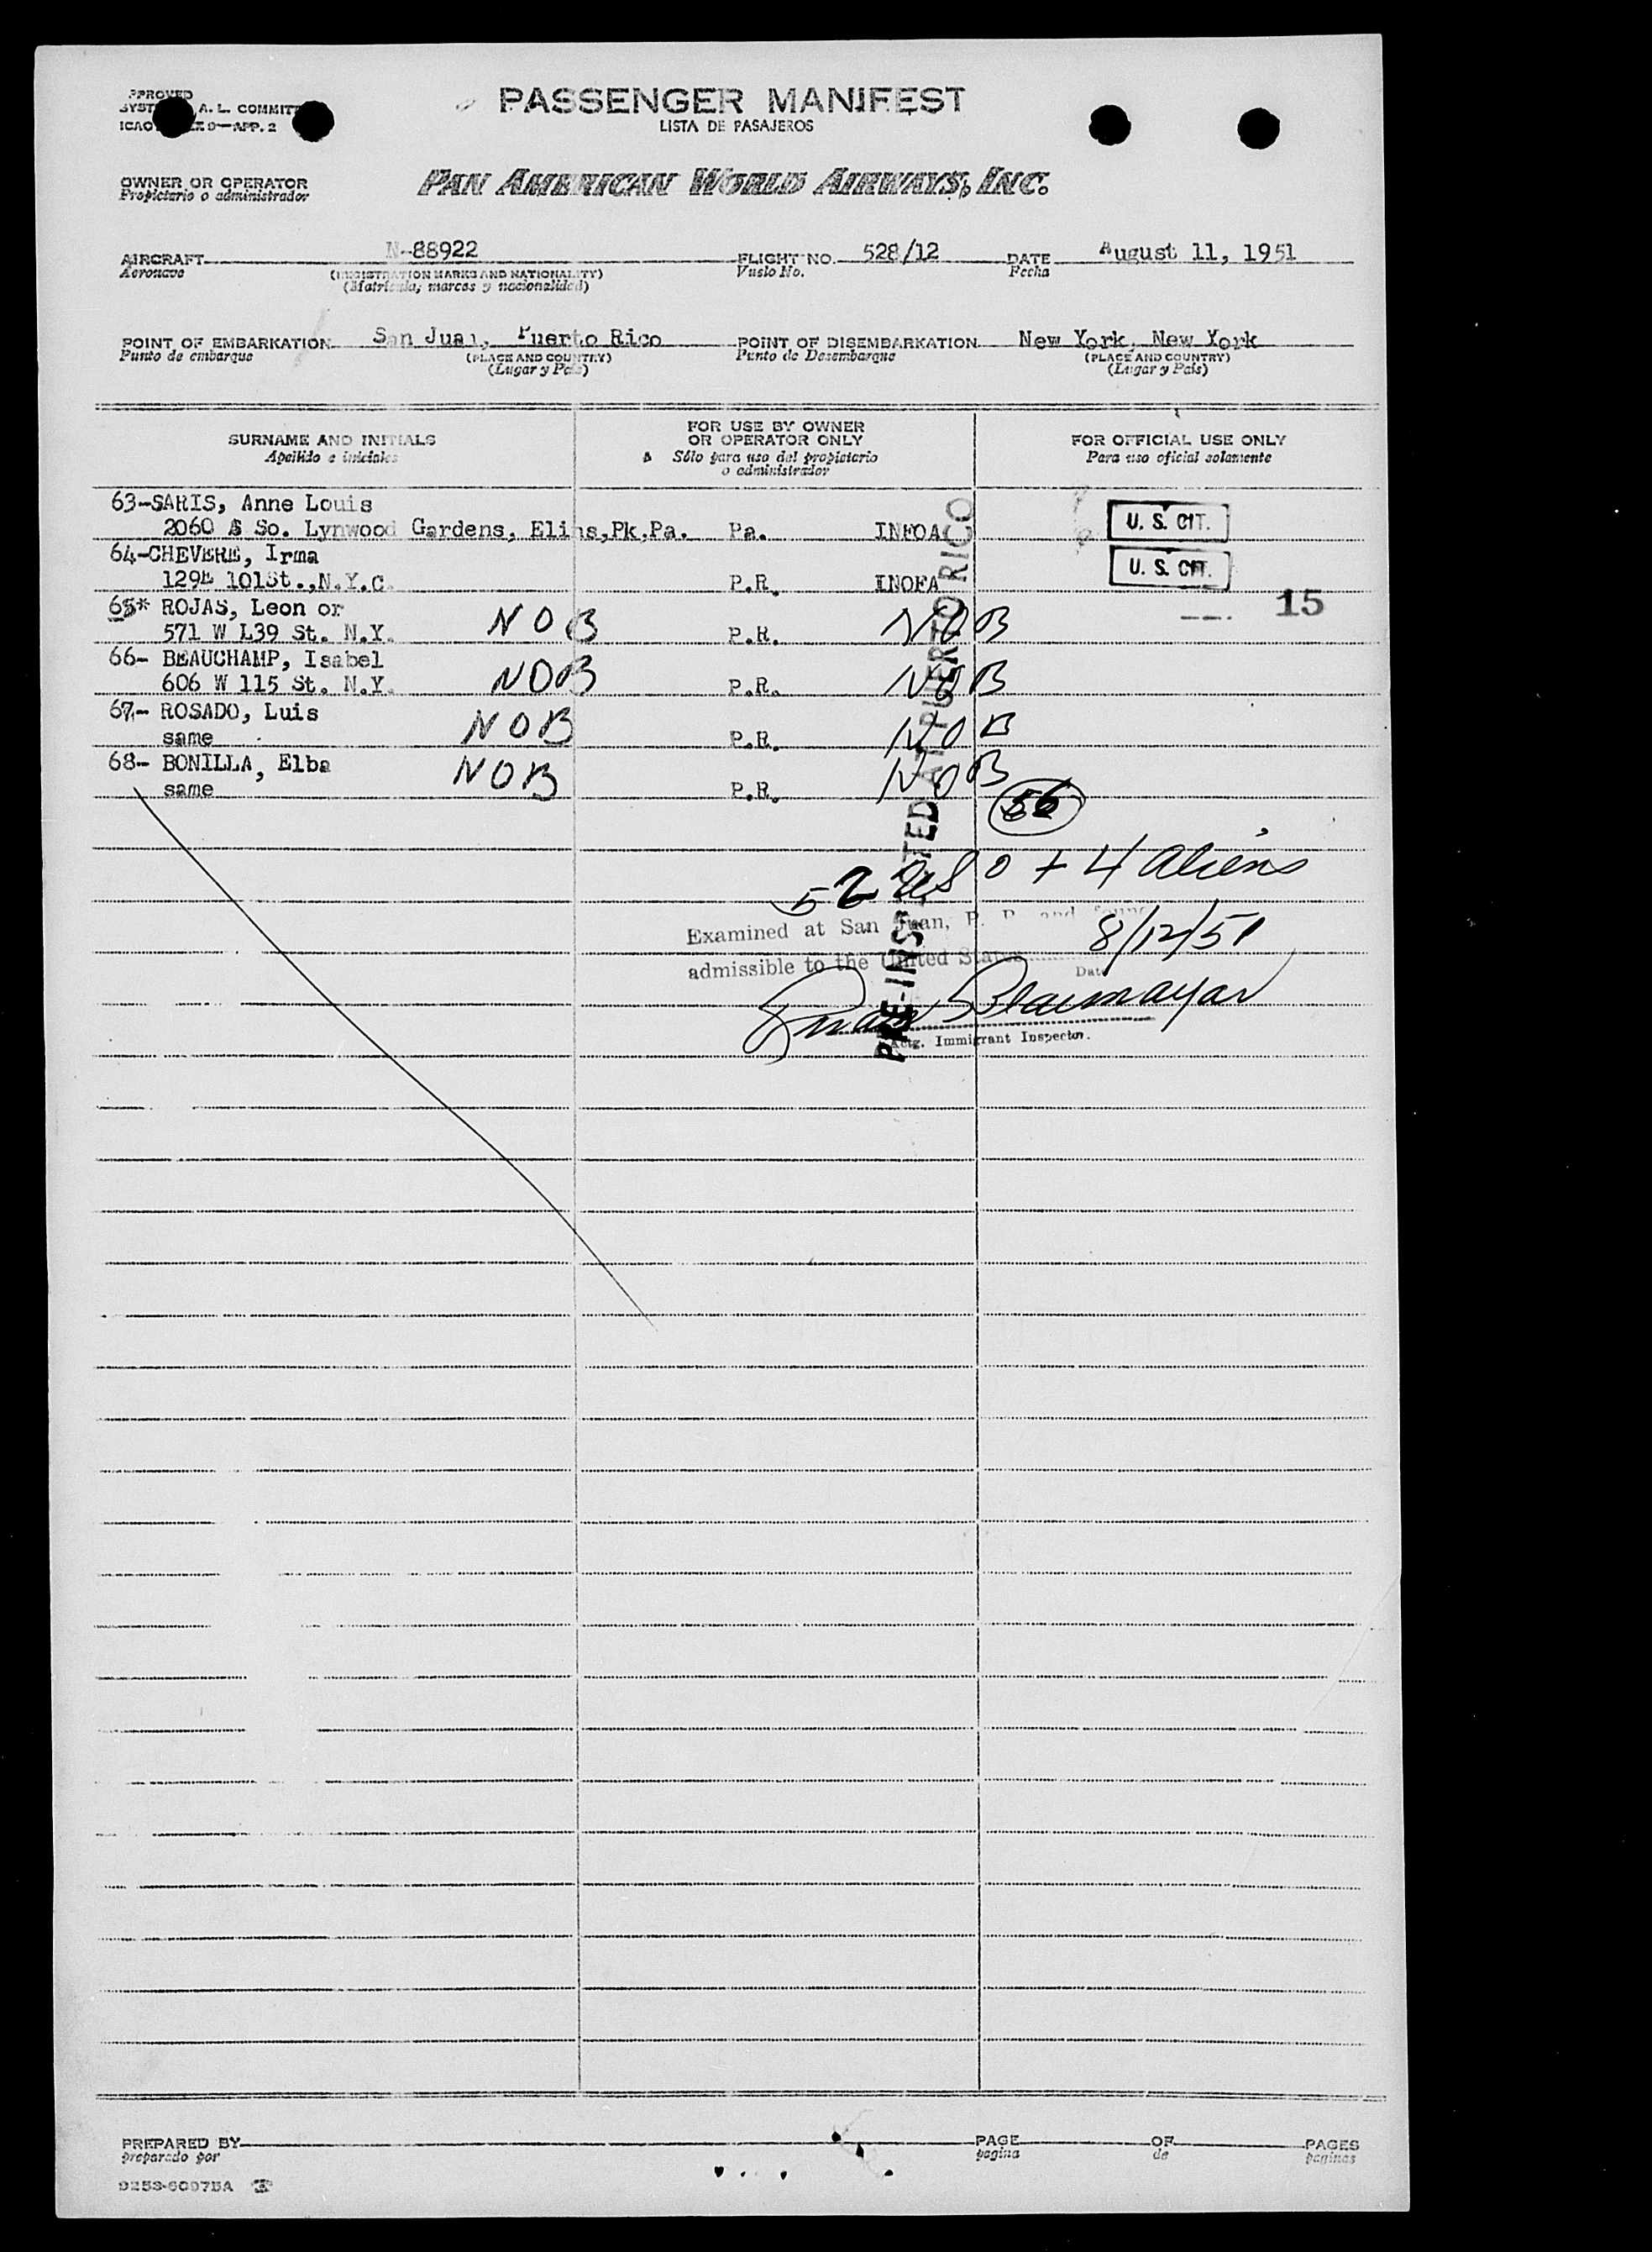 PASSENGER MANIFEST
LISTA DE PASAJEROS
APPROVED
A. L. COMMITT
ICAO 9—APP. 2
OWNER OR OPERATOR
Propietario o administrador
PAN AMERICAN WORLD AIRWAYS, INC.
AIRCRAFT N-88922 FLIGHT NO. 528/12 DATE August 11, 1951
Aeronave (REGISTRATION MARKS AND NATIONALITY) Vuelo No. Fecha
(Matrícula, marcas y nacionalidad)
POINT OF EMBARKATION San Juan, Puerto Rico POINT OF DISEMBARKATION New York, New York
Punto de embarque (PLACE AND COUNTRY) Punto de Desembarque (PLACE AND COUNTRY)
(Lugar y País) (Lugar y País)
SURNAME AND INITIALS FOR USE BY OWNER OR OPERATOR ONLY FOR OFFICIAL USE ONLY
Apellido e iniciales Sólo para uso del propietario o administrador Para uso oficial solamente
63-SARIS, Anne Louis
2060 So. Lynwood Gardens, Elins,Pk,Pa. Pa. INFOA U. S. CIT.
64-CHEVERE, Irma
129E 101St.,N.Y.C. P.R. INOFA U. S. CIT.
65* ROJAS, Leon or 15
571 W L39 St. N.Y. NOB P.R. NOB
66- BEAUCHAMP, Isabel
606 W 115 St. N.Y. NOB P.R. NOB
67- ROSADO, Luis
same NOB P.R. NOB
68- BONILLA, Elba
same NOB P.R. NOB
56
52 USC + 4 aliens
PRE-INSPECTED AT PUERTO RICO
Examined at San Juan, P. R. and found
8/12/51
admissible to the United States
Date
Actg. Immigrant Inspector.
PREPARED BY PAGE OF PAGES
preparado por pagina de paginas
9253-6097BA